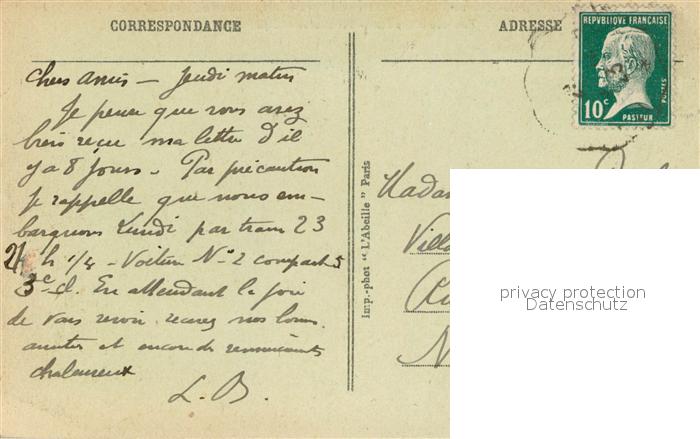 CORRESPONDANCE
ADRESSE
REPVBLIQUE FRANÇAISE
10c
POSTES
PASTEUR
Chers amis — Jeudi matin
Je pense que vous avez
bien reçu ma lettre d'il
y a 8 jours. Par précaution
je rappelle que nous em-
barquons Lundi par train 23
21 h 1/4 - Voiture No 2 compart 5
3e cl. En attendant la joie
de vous revoir recevez nos bonnes
amitiés et encore de remerciements
chaleureux
L. B.
Imp.-phot "L'Abeille" Paris
Madam
Villa
N
privacy protection
Datenschutz